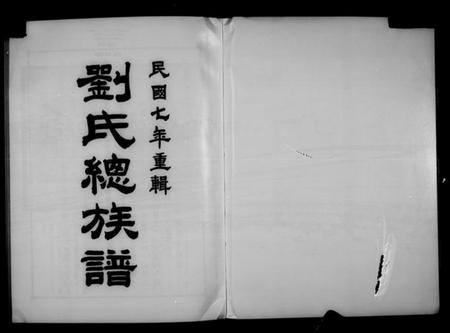 民國七年重輯
劉氏總族譜